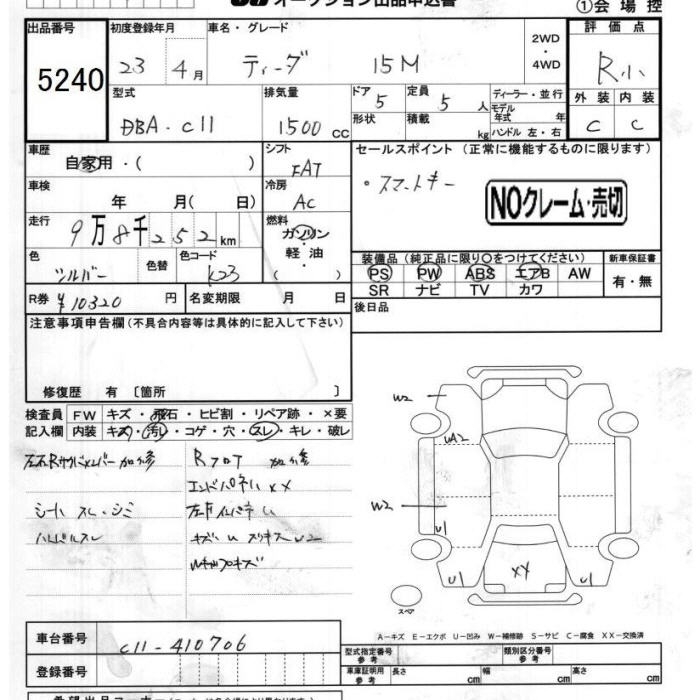 オークション出品申込書
①会場控
出品番号 初度登録年月 車名・グレード 評価点
5240 23年4月 ティーダ 15M 2WD・4WD R小
型式 排気量 ドア 5 定員 5人 ディーラー・並行 外装 内装
DBA・C11 1500cc 形状 積載 kg モデル年式 年 C C
ハンドル 左・右
車歴 シフト セールスポイント (正常に機能するものに限ります)
自家用・( ) FAT
・スマートキー
車検 年 月( 日) 冷房 AC
NOクレーム・売切
走行 9万8千252km 燃料 ガソリン・軽油
色 シルバー 色替 色コード K23
装備品(純正品に限り○をつけてください) 新車保証書
PS PW ABS エアB AW 有・無
SR ナビ TV カワ
R券 ¥10320円 名変期限 月 日 後日品
注意事項申告欄(不具合内容等は具体的に記入して下さい)
修復歴 有 〔箇所 〕
検査員 FW キズ・飛石・ヒビ割・リペア跡・×要
記入欄 内装 キズ・汚レ・コゲ・穴・スレ・キレ・破レ
左右Rサイドメンバー 加修
Rフロア 加修
エンドパネル XX
シート スレ・シミ
ハンドルスレ
キズ
W2
UA2
W2
U1
U1
XX
U1
スペア
A-キズ E-エクボ U-凹み W-補修跡 S-サビ C-腐食 XX-交換済
車台番号 C11-410706
型式指定番号 参考 類別区分番号 参考
登録番号
車庫証明用 参考 長さ cm 幅 cm 高さ cm